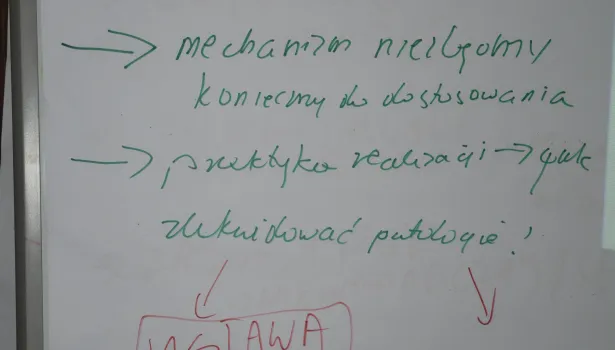 → mechanizm niezbędny
konieczny do dostosowania
→ praktyka realizacji → jak
zlikwidować patologie!
USTAWA